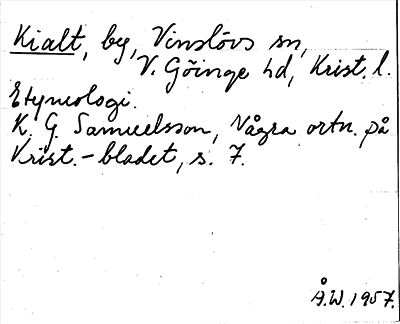 Kialt, by, Vinslövs sn,
V. Göinge hd, Krist. l.
Etymologi.
K. G. Samuelsson, Några ortn. på
Krist.-bladet, s. 7.
Å.W. 1957.